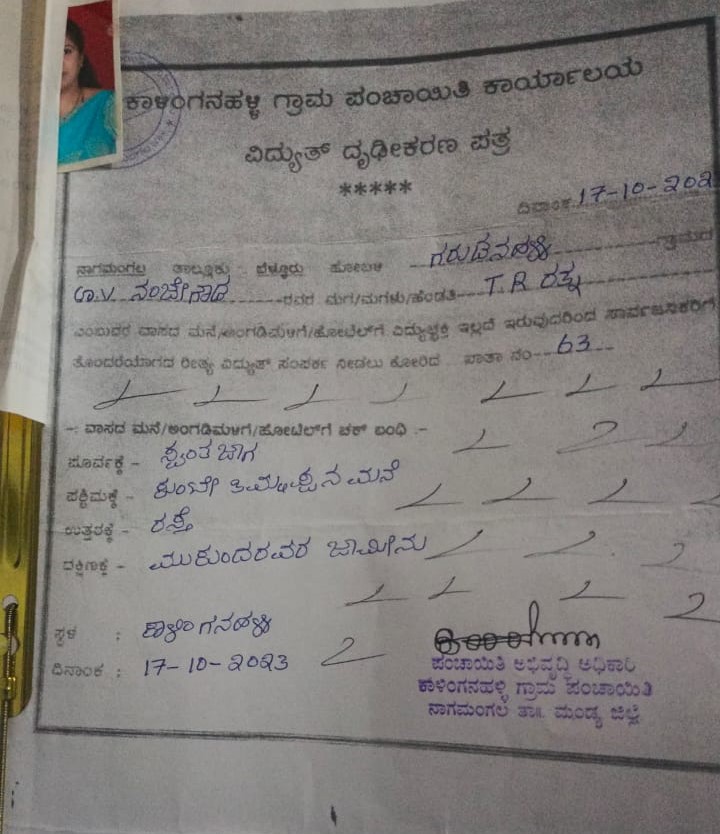 ಕಾಳಿಂಗನಹಳ್ಳಿ ಗ್ರಾಮ ಪಂಚಾಯಿತಿ ಕಾರ್ಯಾಲಯ
ವಿದ್ಯುತ್ ದೃಢೀಕರಣ ಪತ್ರ
*****
ದಿನಾಂಕ 17-10-202
ನಾಗಮಂಗಲ ತಾಲ್ಲೂಕು ಬೆಳ್ಳೂರು ಹೋಬಳಿ ಗರುಡನಹಳ್ಳಿ ಗ್ರಾಮದ
ನಂಜೇಗೌಡ ರವರ ಮಗ/ಮಗಳು/ಹೆಂಡತಿ T.R ರತ್ನ
ಎಂಬುವರ ವಾಸದ ಮನೆ/ಅಂಗಡಿಮಳಿಗೆ/ಹೋಟೆಲ್‌ಗೆ ವಿದ್ಯುಚ್ಛಕ್ತಿ ಇಲ್ಲದೆ ಇರುವುದರಿಂದ ಸಾರ್ವಜನಿಕರಿಗೆ
ತೊಂದರೆಯಾಗದ ರೀತ್ಯ ವಿದ್ಯುತ್ ಸಂಪರ್ಕ ನೀಡಲು ಕೋರಿದೆ ಖಾತಾ ನಂ 63
-: ವಾಸದ ಮನೆ/ಅಂಗಡಿಮಳಿಗೆ/ಹೋಟೆಲ್‌ಗೆ ಚಕ್ ಬಂಧಿ :-
ಪೂರ್ವಕ್ಕೆ - ಸ್ವಂತ ಜಾಗ
ಪಶ್ಚಿಮಕ್ಕೆ - ತಿಮ್ಮಪ್ಪನ ಮನೆ
ಉತ್ತರಕ್ಕೆ - ರಸ್ತೆ
ದಕ್ಷಿಣಕ್ಕೆ - ಮುಕುಂದರವರ ಜಾಮೀನು
ಸ್ಥಳ : ಕಾಳಿಂಗನಹಳ್ಳಿ
ದಿನಾಂಕ : 17-10-2023
ಪಂಚಾಯಿತಿ ಅಭಿವೃದ್ಧಿ ಅಧಿಕಾರಿ
ಕಾಳಿಂಗನಹಳ್ಳಿ ಗ್ರಾಮ ಪಂಚಾಯಿತಿ
ನಾಗಮಂಗಲ ತಾ॥ ಮಂಡ್ಯ ಜಿಲ್ಲೆ